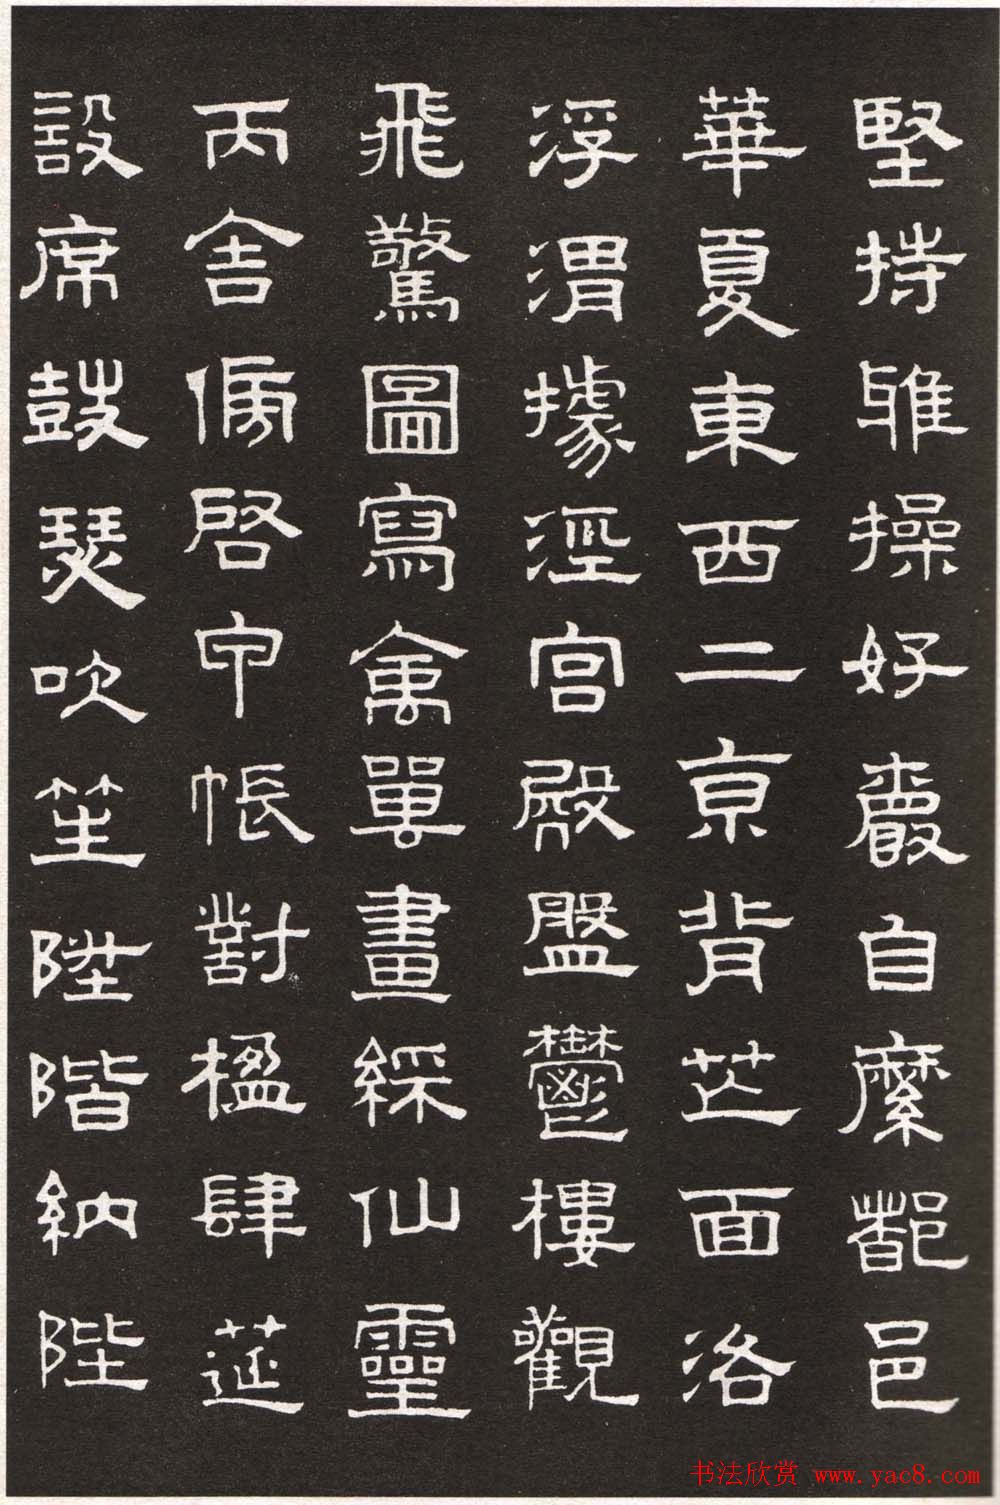 堅持雅操好爵自縻都邑
華夏東西二京背芒面洛
浮渭據涇宮殿盤鬱樓觀
飛驚圖寫禽獸畫綵仙靈
丙舍傍啓甲帳對楹肆筵
設席鼓瑟吹笙陞階納陛
书法欣赏 www.yac8.com